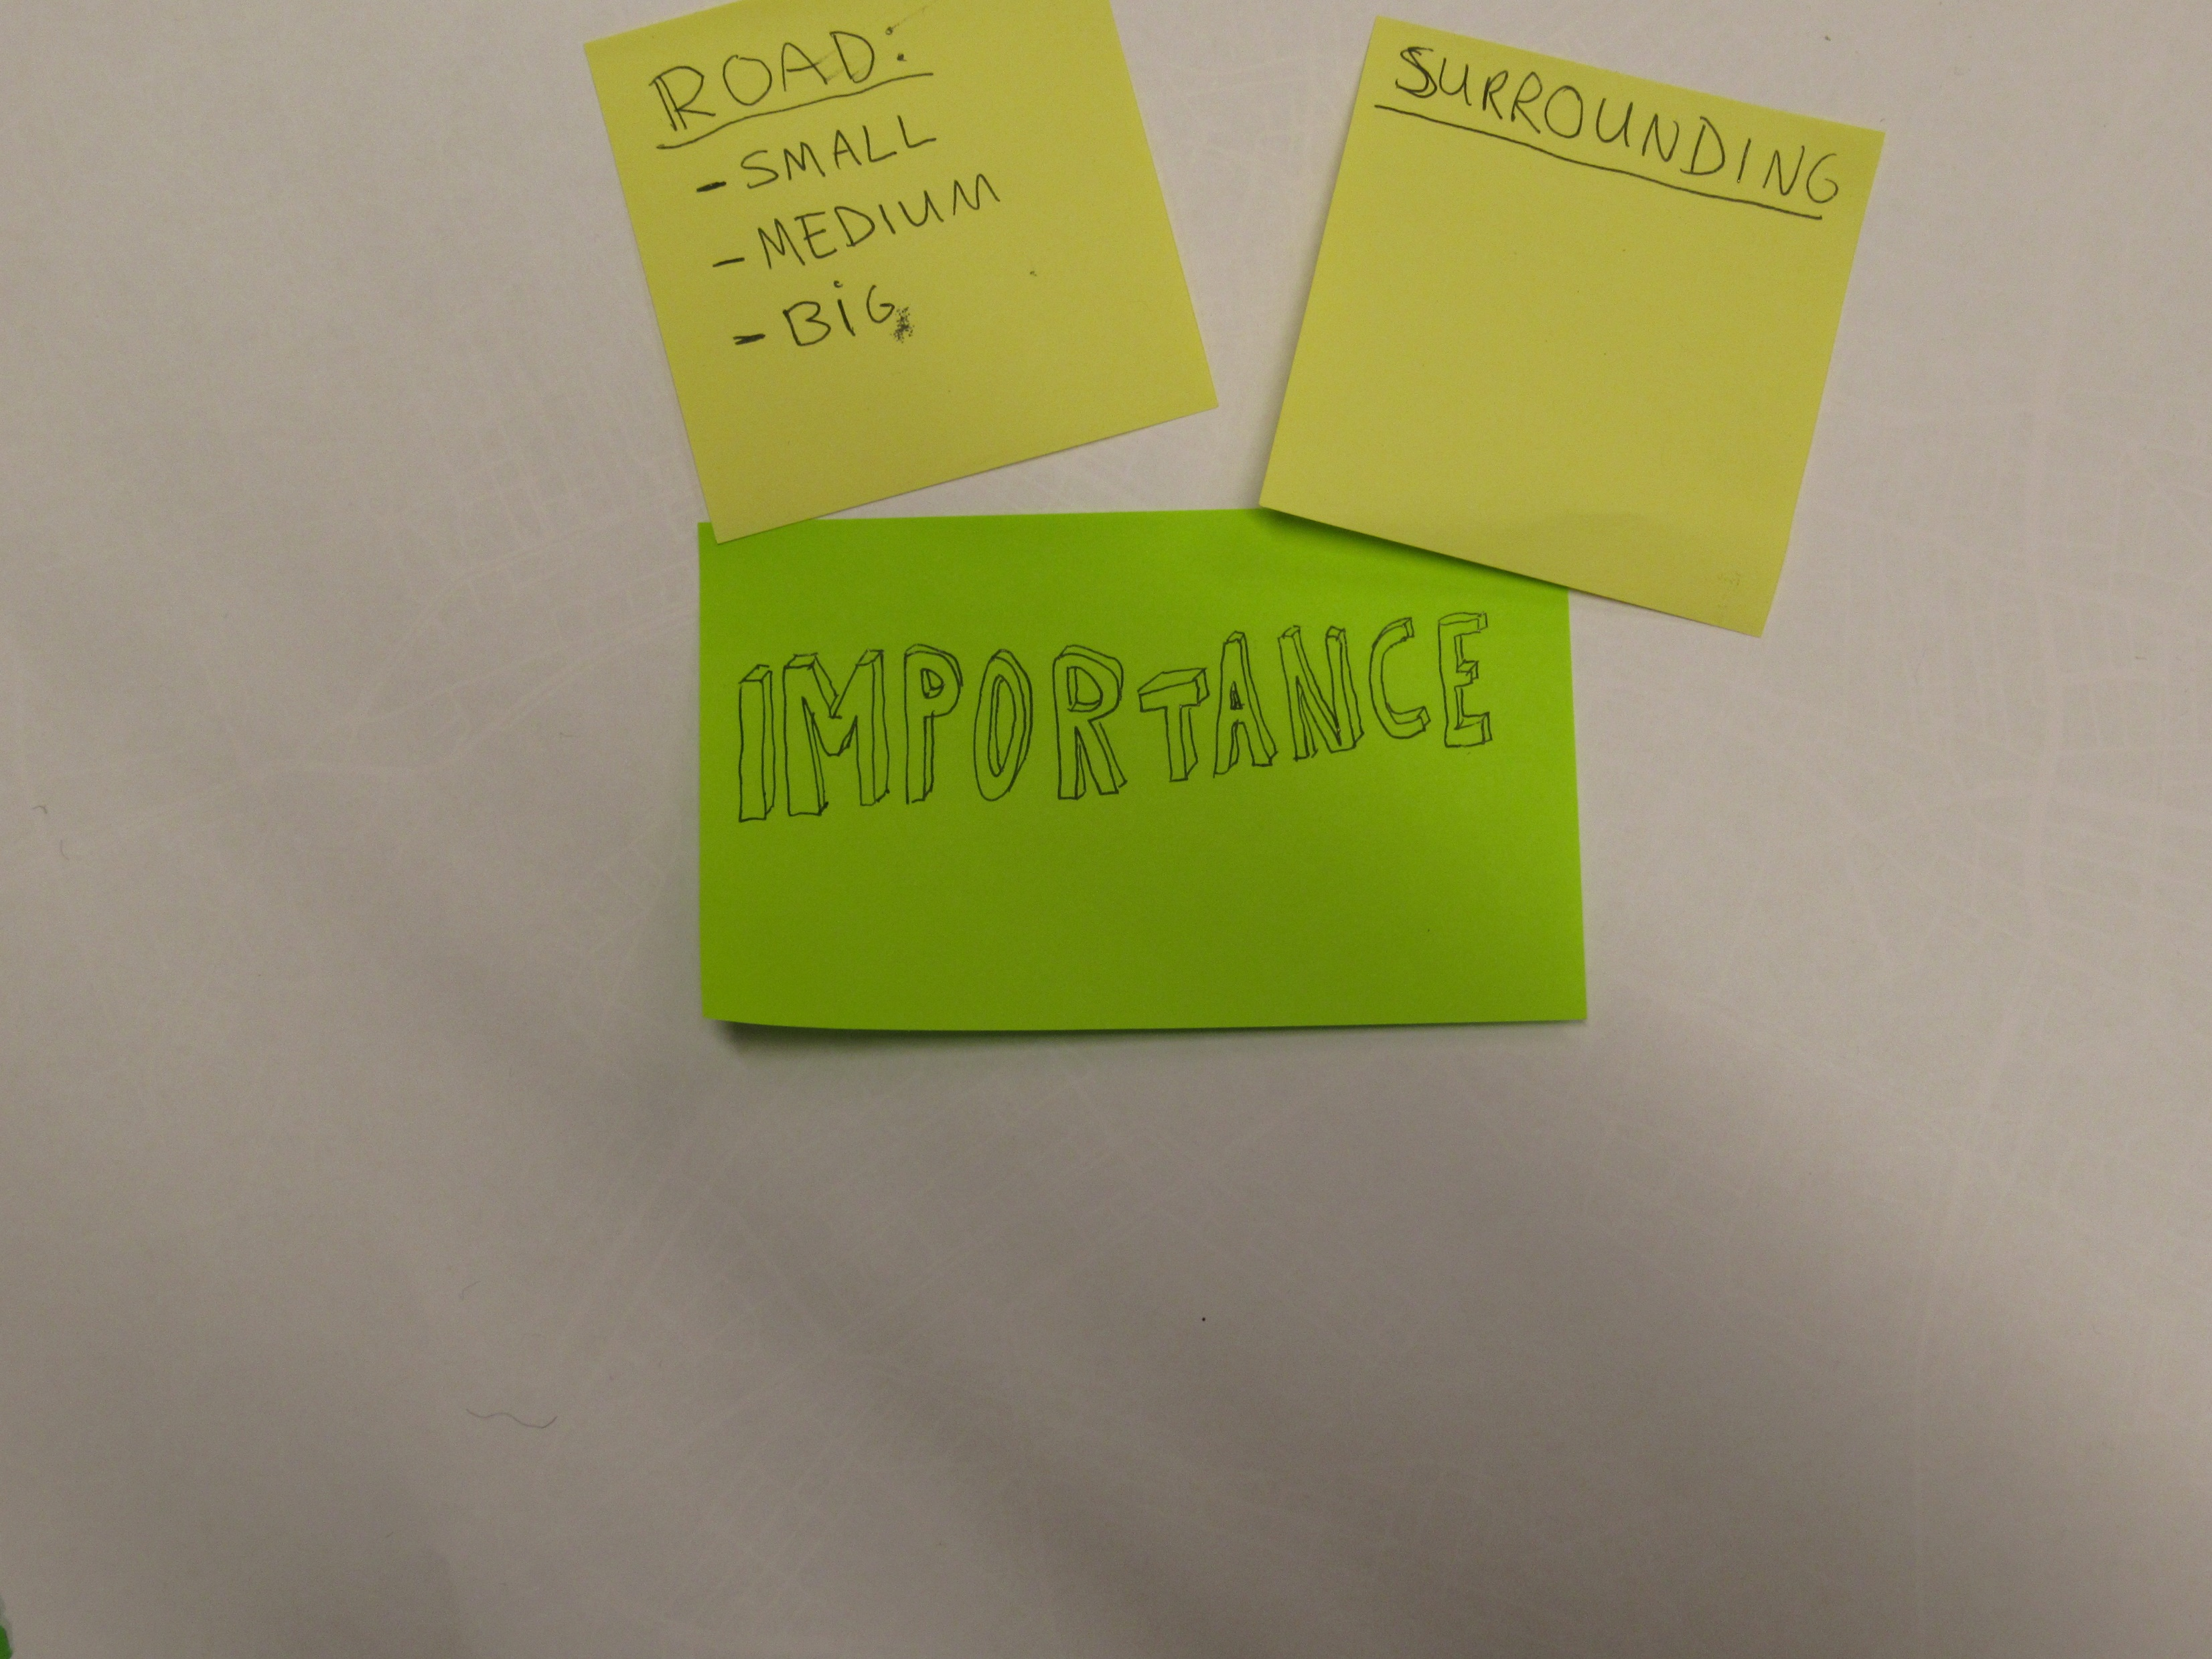 ROAD:
- SMALL
- MEDIUM
- BiG
SURROUNDING
IMPORTANCE